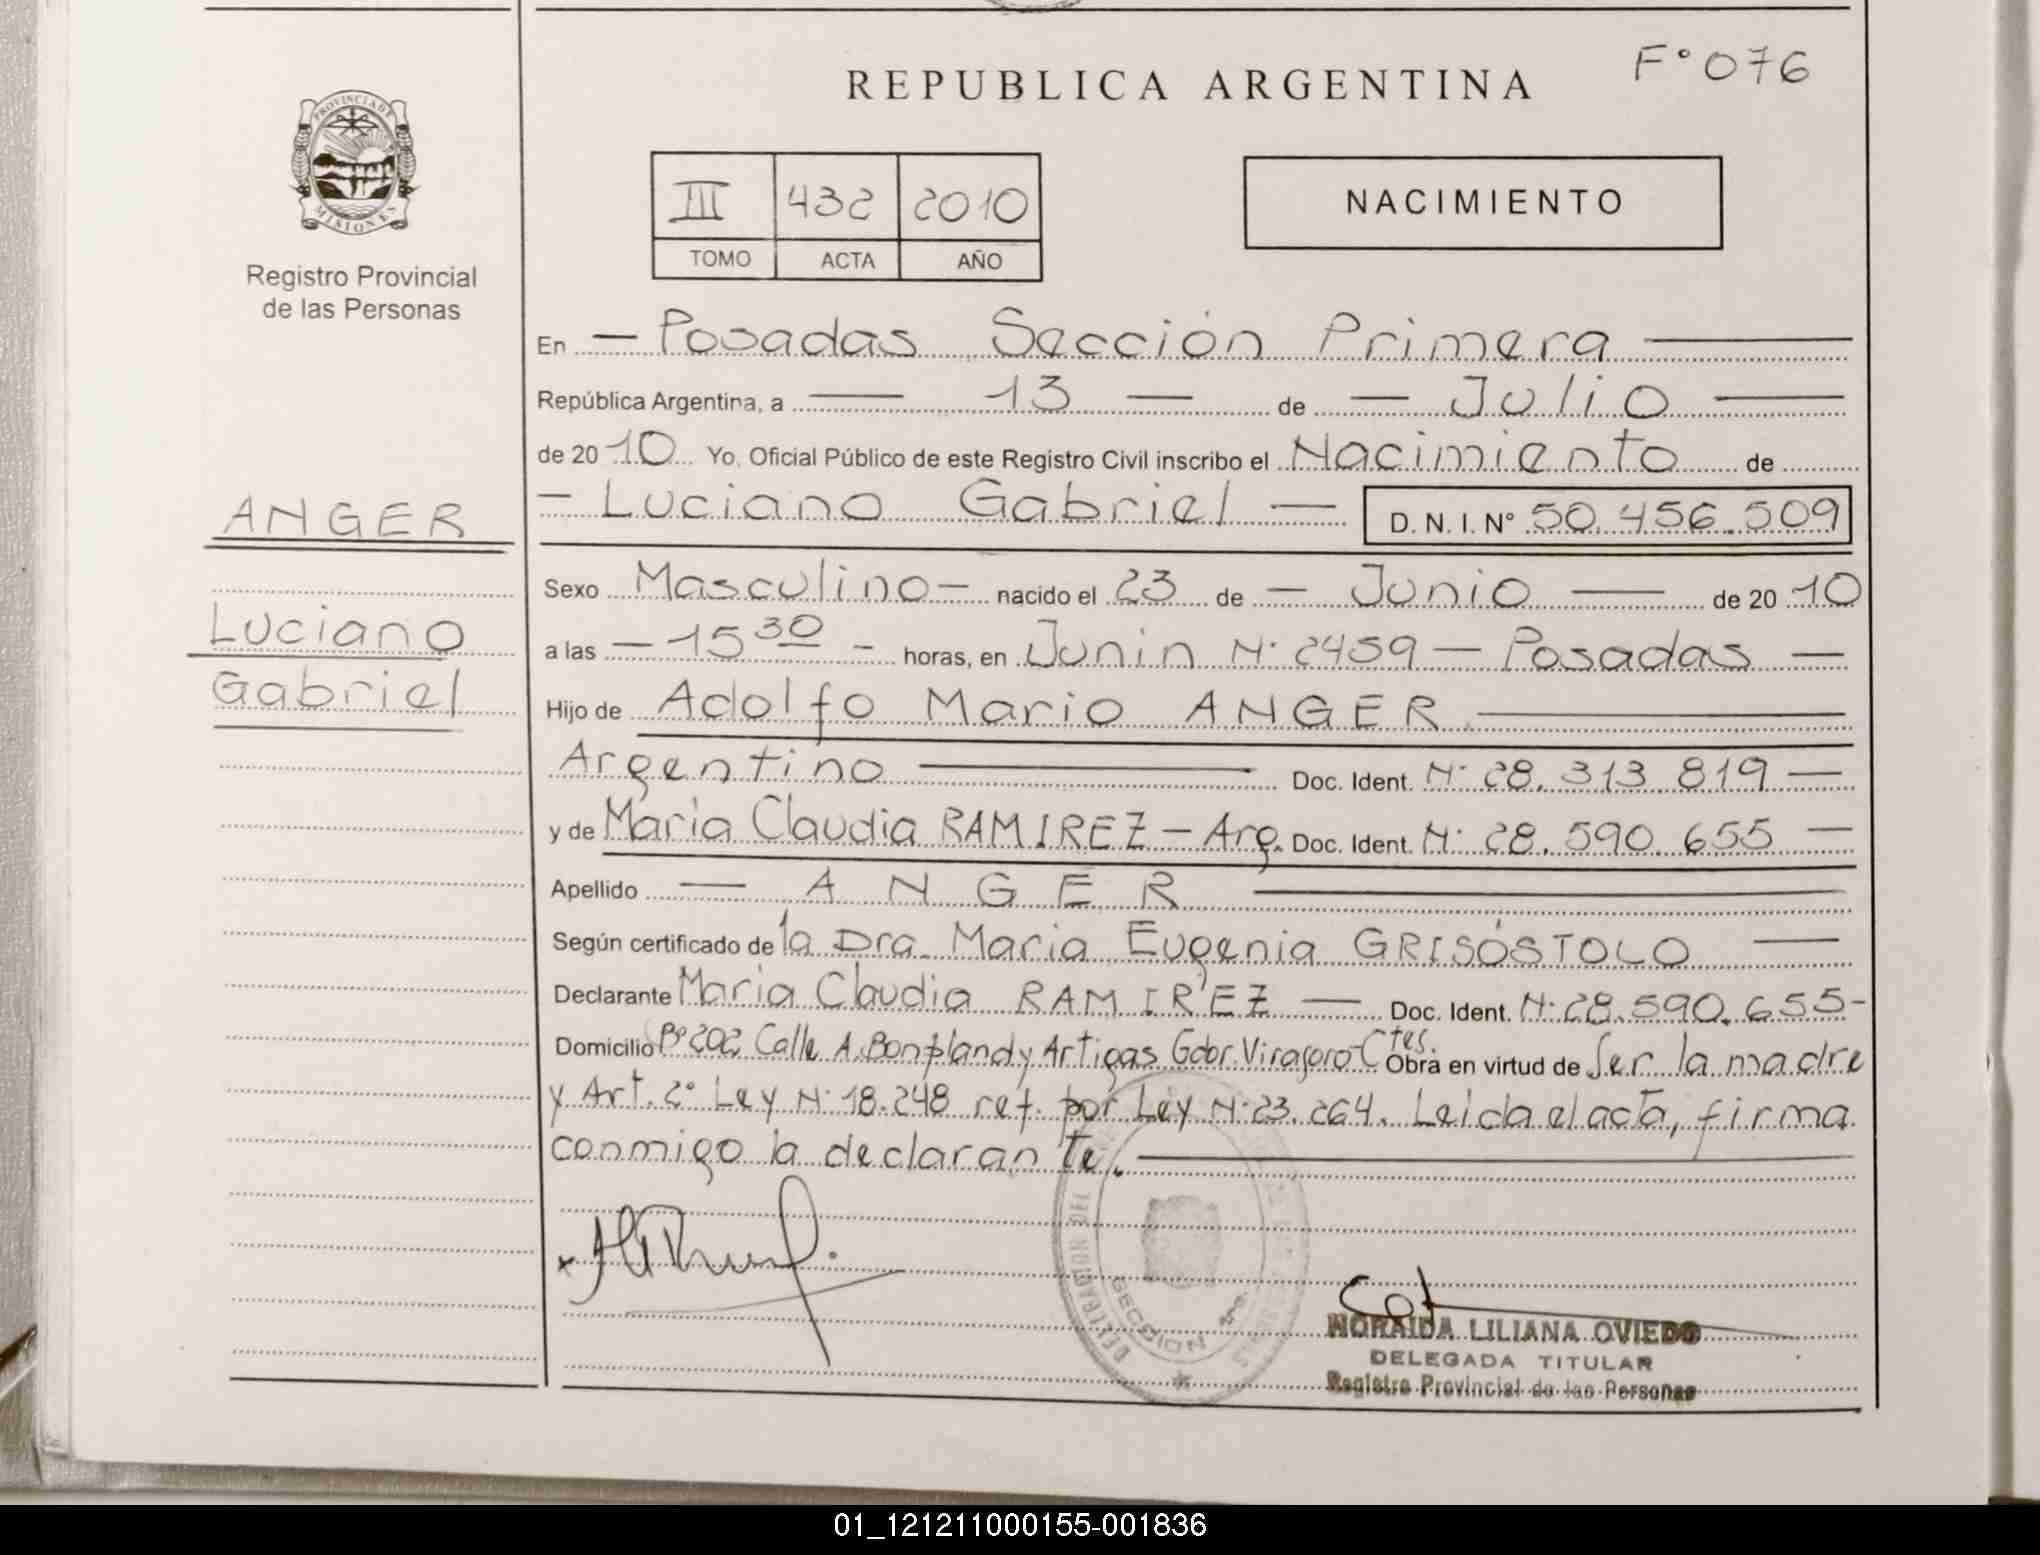 F° 076
REPUBLICA ARGENTINA
PROVINCIA DE
MISIONES
Registro Provincial
de las Personas
III 432 2010
TOMO ACTA AÑO
NACIMIENTO
En — Posadas Sección Primera —
República Argentina, a — 13 — de — Julio —
de 2010 Yo, Oficial Público de este Registro Civil inscribo el Nacimiento de
— Luciano Gabriel — D. N. I. N° 50.456.509
ANGER
Luciano
Gabriel
Sexo Masculino — nacido el 23 de — Junio — de 2010
a las — 15 30 — horas, en Junin N° 2459 — Posadas —
Hijo de Adolfo Mario ANGER —
Argentino — Doc. Ident. N° 28.313.819 —
y de Maria Claudia RAMIREZ — Arg. Doc. Ident. N° 28.590.655 —
Apellido — ANGER —
Según certificado de la Dra. Maria Eugenia GRISÓSTOLO —
Declarante Maria Claudia RAMIREZ — Doc. Ident. N° 28.590.655 -
Domicilio B° 202 Calle A. Bonpland y Artigas Gdor. Virasoro - Ctes. Obra en virtud de Ser la madre
y Art. 2° Ley N° 18.248 ref. por Ley N° 23.264. Leida el acta, firma
conmigo la declarante. —
SECCION 1ra.
NORAIDA LILIANA OVIEDO
DELEGADA TITULAR
Registro Provincial de las Personas
01_121211000155-001836